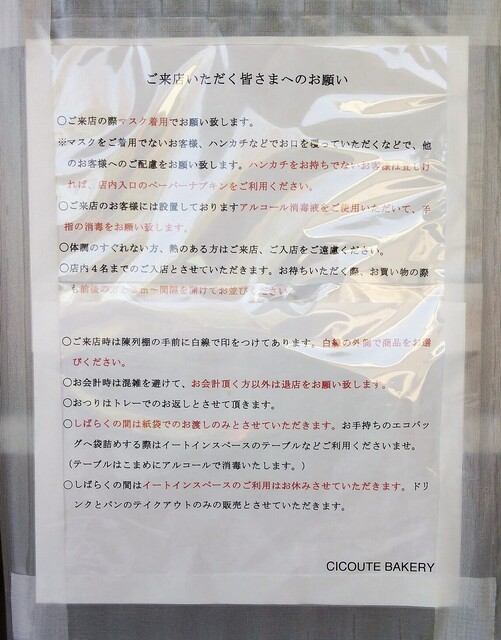 ご来店いただく皆さまへのお願い
○ご来店の際マスク着用でお願い致します。
※マスクをご着用でないお客様、ハンカチなどでお口を覆っていただくなどで、他
のお客様へのご配慮をお願い致します。ハンカチをお持ちでないお客様は宜しけ
れば、店内入口のペーパーナプキンをご利用ください。
○ご来店のお客様には設置しておりますアルコール消毒液をご使用いただいて、手
指の消毒をお願い致します。
○体調のすぐれない方、熱のある方はご来店、ご入店をご遠慮ください。
○店内４名までのご入店とさせていただきます。お待ちいただく際、お買い物の際
も前後の方と ｍ～間隔を開けてお並びください。
○ご来店時は陳列棚の手前に白線で印をつけてあります。白線の外側で商品をお選
びください。
○お会計時は混雑を避けて、お会計頂く方以外は退店をお願い致します。
○おつりはトレーでのお返しとさせて頂きます。
○しばらくの間は紙袋でのお渡しのみとさせていただきます。お手持ちのエコバッ
グへ袋詰めする際はイートインスペースのテーブルなどご利用くださいませ。
（テーブルはこまめにアルコールで消毒いたします。）
○しばらくの間はイートインスペースのご利用はお休みさせていただきます。ドリ
ンクとパンのテイクアウトのみの販売とさせていただきます。
CICOUTE BAKERY